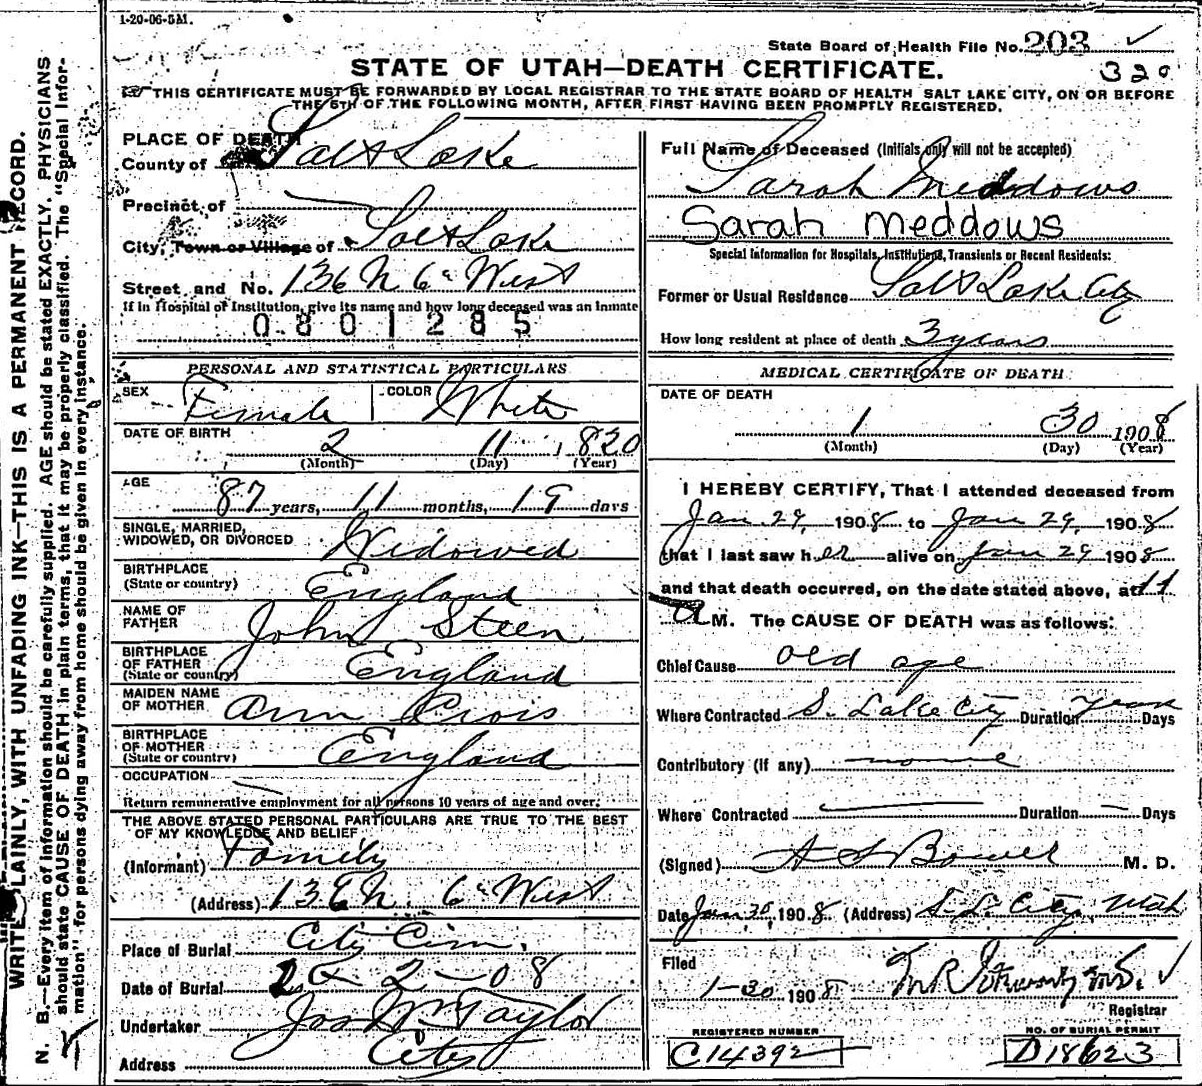 1-20-06-5M.
State Board of Health File No. 203
320
STATE OF UTAH—DEATH CERTIFICATE.
THIS CERTIFICATE MUST BE FORWARDED BY LOCAL REGISTRAR TO THE STATE BOARD OF HEALTH SALT LAKE CITY, ON OR BEFORE
THE 5TH OF THE FOLLOWING MONTH, AFTER FIRST HAVING BEEN PROMPTLY REGISTERED.
WRITE PLAINLY, WITH UNFADING INK—THIS IS A PERMANENT RECORD.
N. B.—Every item of information should be carefully supplied. AGE should be stated EXACTLY. PHYSICIANS
should state CAUSE OF DEATH in plain terms, that it may be properly classified. The "Special Infor-
mation" for persons dying away from home should be given in every instance.
PLACE OF DEATH
County of Salt Lake
Precinct of
City, Town or Village of Salt Lake
Street and No. 136 N 6 West
If in Hospital of Institution, give its name and how long deceased was an Inmate
0801285
PERSONAL AND STATISTICAL PARTICULARS
SEX Female COLOR White
DATE OF BIRTH
2 11 1820
(Month) (Day) (Year)
AGE
87 years, 11 months, 19 days
SINGLE, MARRIED,
WIDOWED, OR DIVORCED Widowed
BIRTHPLACE
(State or country) England
NAME OF
FATHER John Steen
BIRTHPLACE
OF FATHER
(State or country) England
MAIDEN NAME
OF MOTHER Ann
BIRTHPLACE
OF MOTHER
(State or country) England
OCCUPATION
Return remunerative employment for all persons 10 years of age and over.
THE ABOVE STATED PERSONAL PARTICULARS ARE TRUE TO THE BEST
OF MY KNOWLEDGE AND BELIEF
(Informant) Family
(Address) 136 N. 6 West
Place of Burial City Cem.
Date of Burial 2-08
Undertaker Jos Wm Taylor
Address City
Full Name of Deceased (Initials only will not be accepted)
Sarah Meddows
Sarah Meddows
Special Information for Hospitals, Institutions, Transients or Recent Residents:
Former or Usual Residence Salt Lake City
How long resident at place of death 3 years
MEDICAL CERTIFICATE OF DEATH
DATE OF DEATH
1 30 1908
(Month) (Day) (Year)
I HEREBY CERTIFY, That I attended deceased from
Jan 29, 1908 to Jan 29, 1908
that I last saw her alive on Jan 29 1908
and that death occurred, on the date stated above, at 11
A M. The CAUSE OF DEATH was as follows:
Chief Cause old age
Where Contracted S. Lake City Duration years Days
Contributory (if any) none
Where Contracted Duration — Days
(Signed) A S Bower M. D.
Date Jan 30, 1908 (Address) S. L. City, Utah
Filed
1-30 1908
Registrar
REGISTERED NUMBER
C14392
NO. OF BURIAL PERMIT
D18623